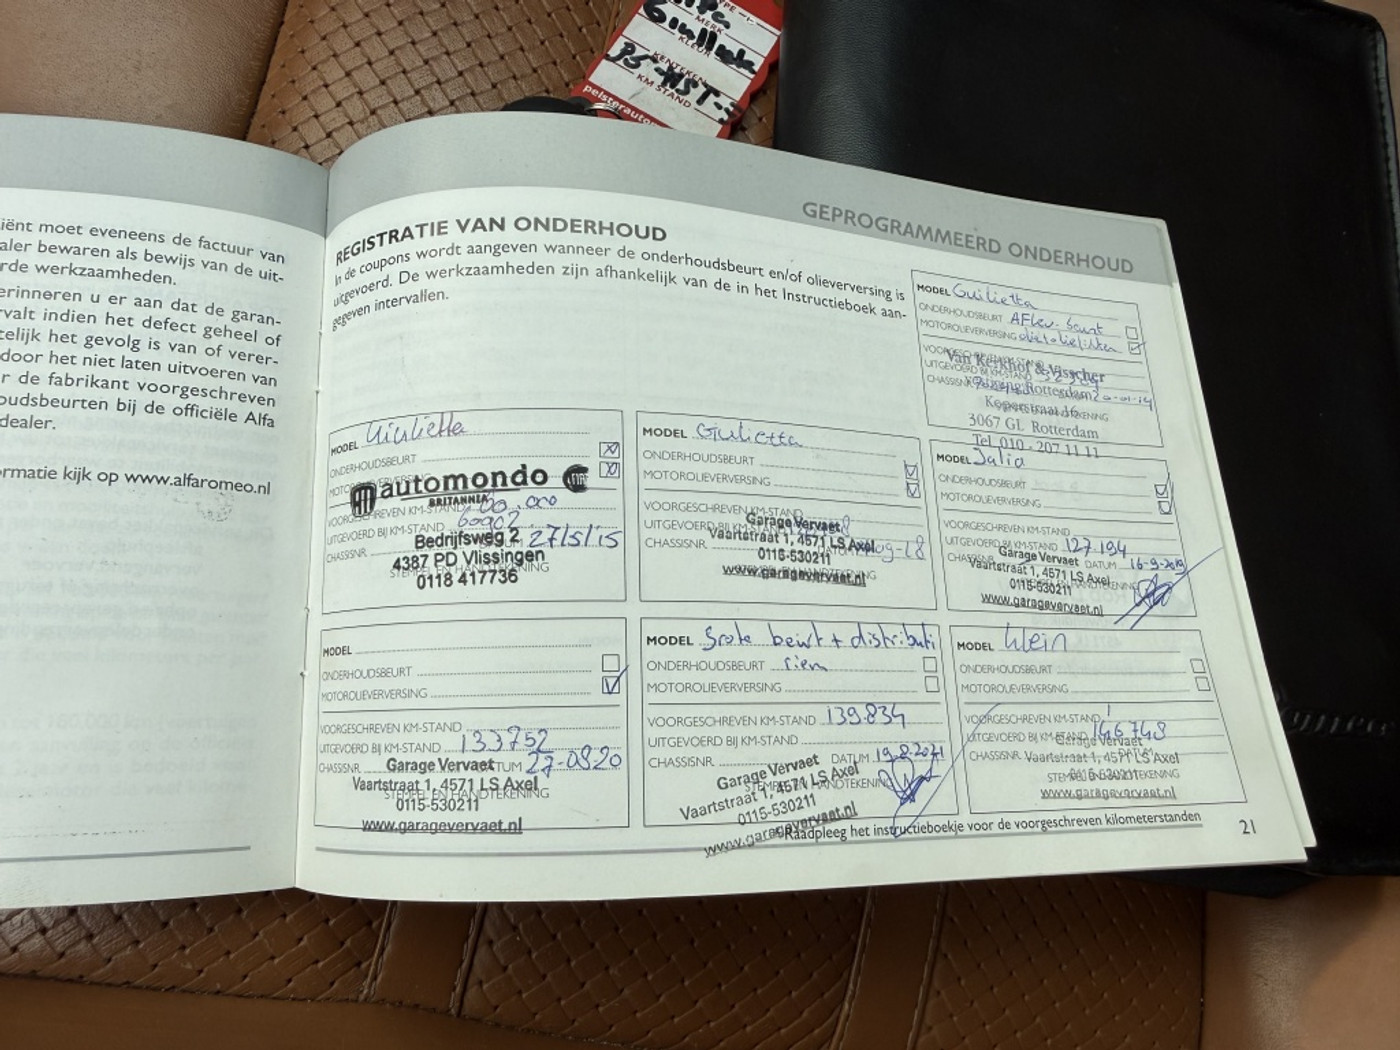 MERK
Giulietta
KLEUR
KENTEKEN
KM STAND
pelsterauto
iënt moet eveneens de factuur van
aler bewaren als bewijs van de uit-
rde werkzaamheden.
erinneren u er aan dat de garan-
rvalt indien het defect geheel of
telijk het gevolg is van of verer-
door het niet laten uitvoeren van
r de fabrikant voorgeschreven
oudsbeurten bij de officiële Alfa
dealer.
ormatie kijk op www.alfaromeo.nl
GEPROGRAMMEERD ONDERHOUD
REGISTRATIE VAN ONDERHOUD
In de coupons wordt aangeven wanneer de onderhoudsbeurt en/of olieverversing is
uitgevoerd. De werkzaamheden zijn afhankelijk van de in het Instructieboek aan-
gegeven intervallen.
MODEL Guilietta
ONDERHOUDSBEURT AFlev. beurt
MOTOROLIEVERVERSING
VOORGESCHREVEN KM-STAND
UITGEVOERD BIJ KM-STAND
CHASSISNR.
Van Kerkhof & Visscher
Rotterdam
3067 GL Rotterdam
Tel. 010 - 207 11 11
MODEL Giulietta
ONDERHOUDSBEURT
MOTOROLIEVERVERSING
automondo
BRITANNIA
VOORGESCHREVEN KM-STAND 60.000
UITGEVOERD BIJ KM-STAND 60902
CHASSISNR. 27/5/15
Bedrijfsweg 2
4387 PD Vlissingen
STEMPEL EN HANDTEKENING
0118 417736
MODEL Giulietta
ONDERHOUDSBEURT
MOTOROLIEVERVERSING
VOORGESCHREVEN KM-STAND
UITGEVOERD BIJ KM-STAND
CHASSISNR.
Garage Vervaet
Vaartstraat 1, 4571 LS Axel
0115-530211
www.garagevervaet.nl
MODEL Julia
ONDERHOUDSBEURT
MOTOROLIEVERVERSING
VOORGESCHREVEN KM-STAND
UITGEVOERD BIJ KM-STAND 127.194
CHASSISNR. DATUM 16-9-2019
Garage Vervaet
Vaartstraat 1, 4571 LS Axel
0115-530211
www.garagevervaet.nl
MODEL
ONDERHOUDSBEURT
MOTOROLIEVERVERSING
VOORGESCHREVEN KM-STAND
UITGEVOERD BIJ KM-STAND 133752
CHASSISNR. DATUM 27-0820
Garage Vervaet
Vaartstraat 1, 4571 LS Axel
STEMPEL EN HANDTEKENING
0115-530211
www.garagevervaet.nl
MODEL Grote beurt + distributi
ONDERHOUDSBEURT riem
MOTOROLIEVERVERSING
VOORGESCHREVEN KM-STAND 139.834
UITGEVOERD BIJ KM-STAND
CHASSISNR. DATUM 19.8.2021
Garage Vervaet
Vaartstraat 1, 4571 LS Axel
0115-530211
www.garagevervaet.nl
MODEL Klein
ONDERHOUDSBEURT
MOTOROLIEVERVERSING
VOORGESCHREVEN KM-STAND
UITGEVOERD BIJ KM-STAND 146748
CHASSISNR.
Garage Vervaet
Vaartstraat 1, 4571 LS Axel
0115-530211
www.garagevervaet.nl
Raadpleeg het instructieboekje voor de voorgeschreven kilometerstanden
21